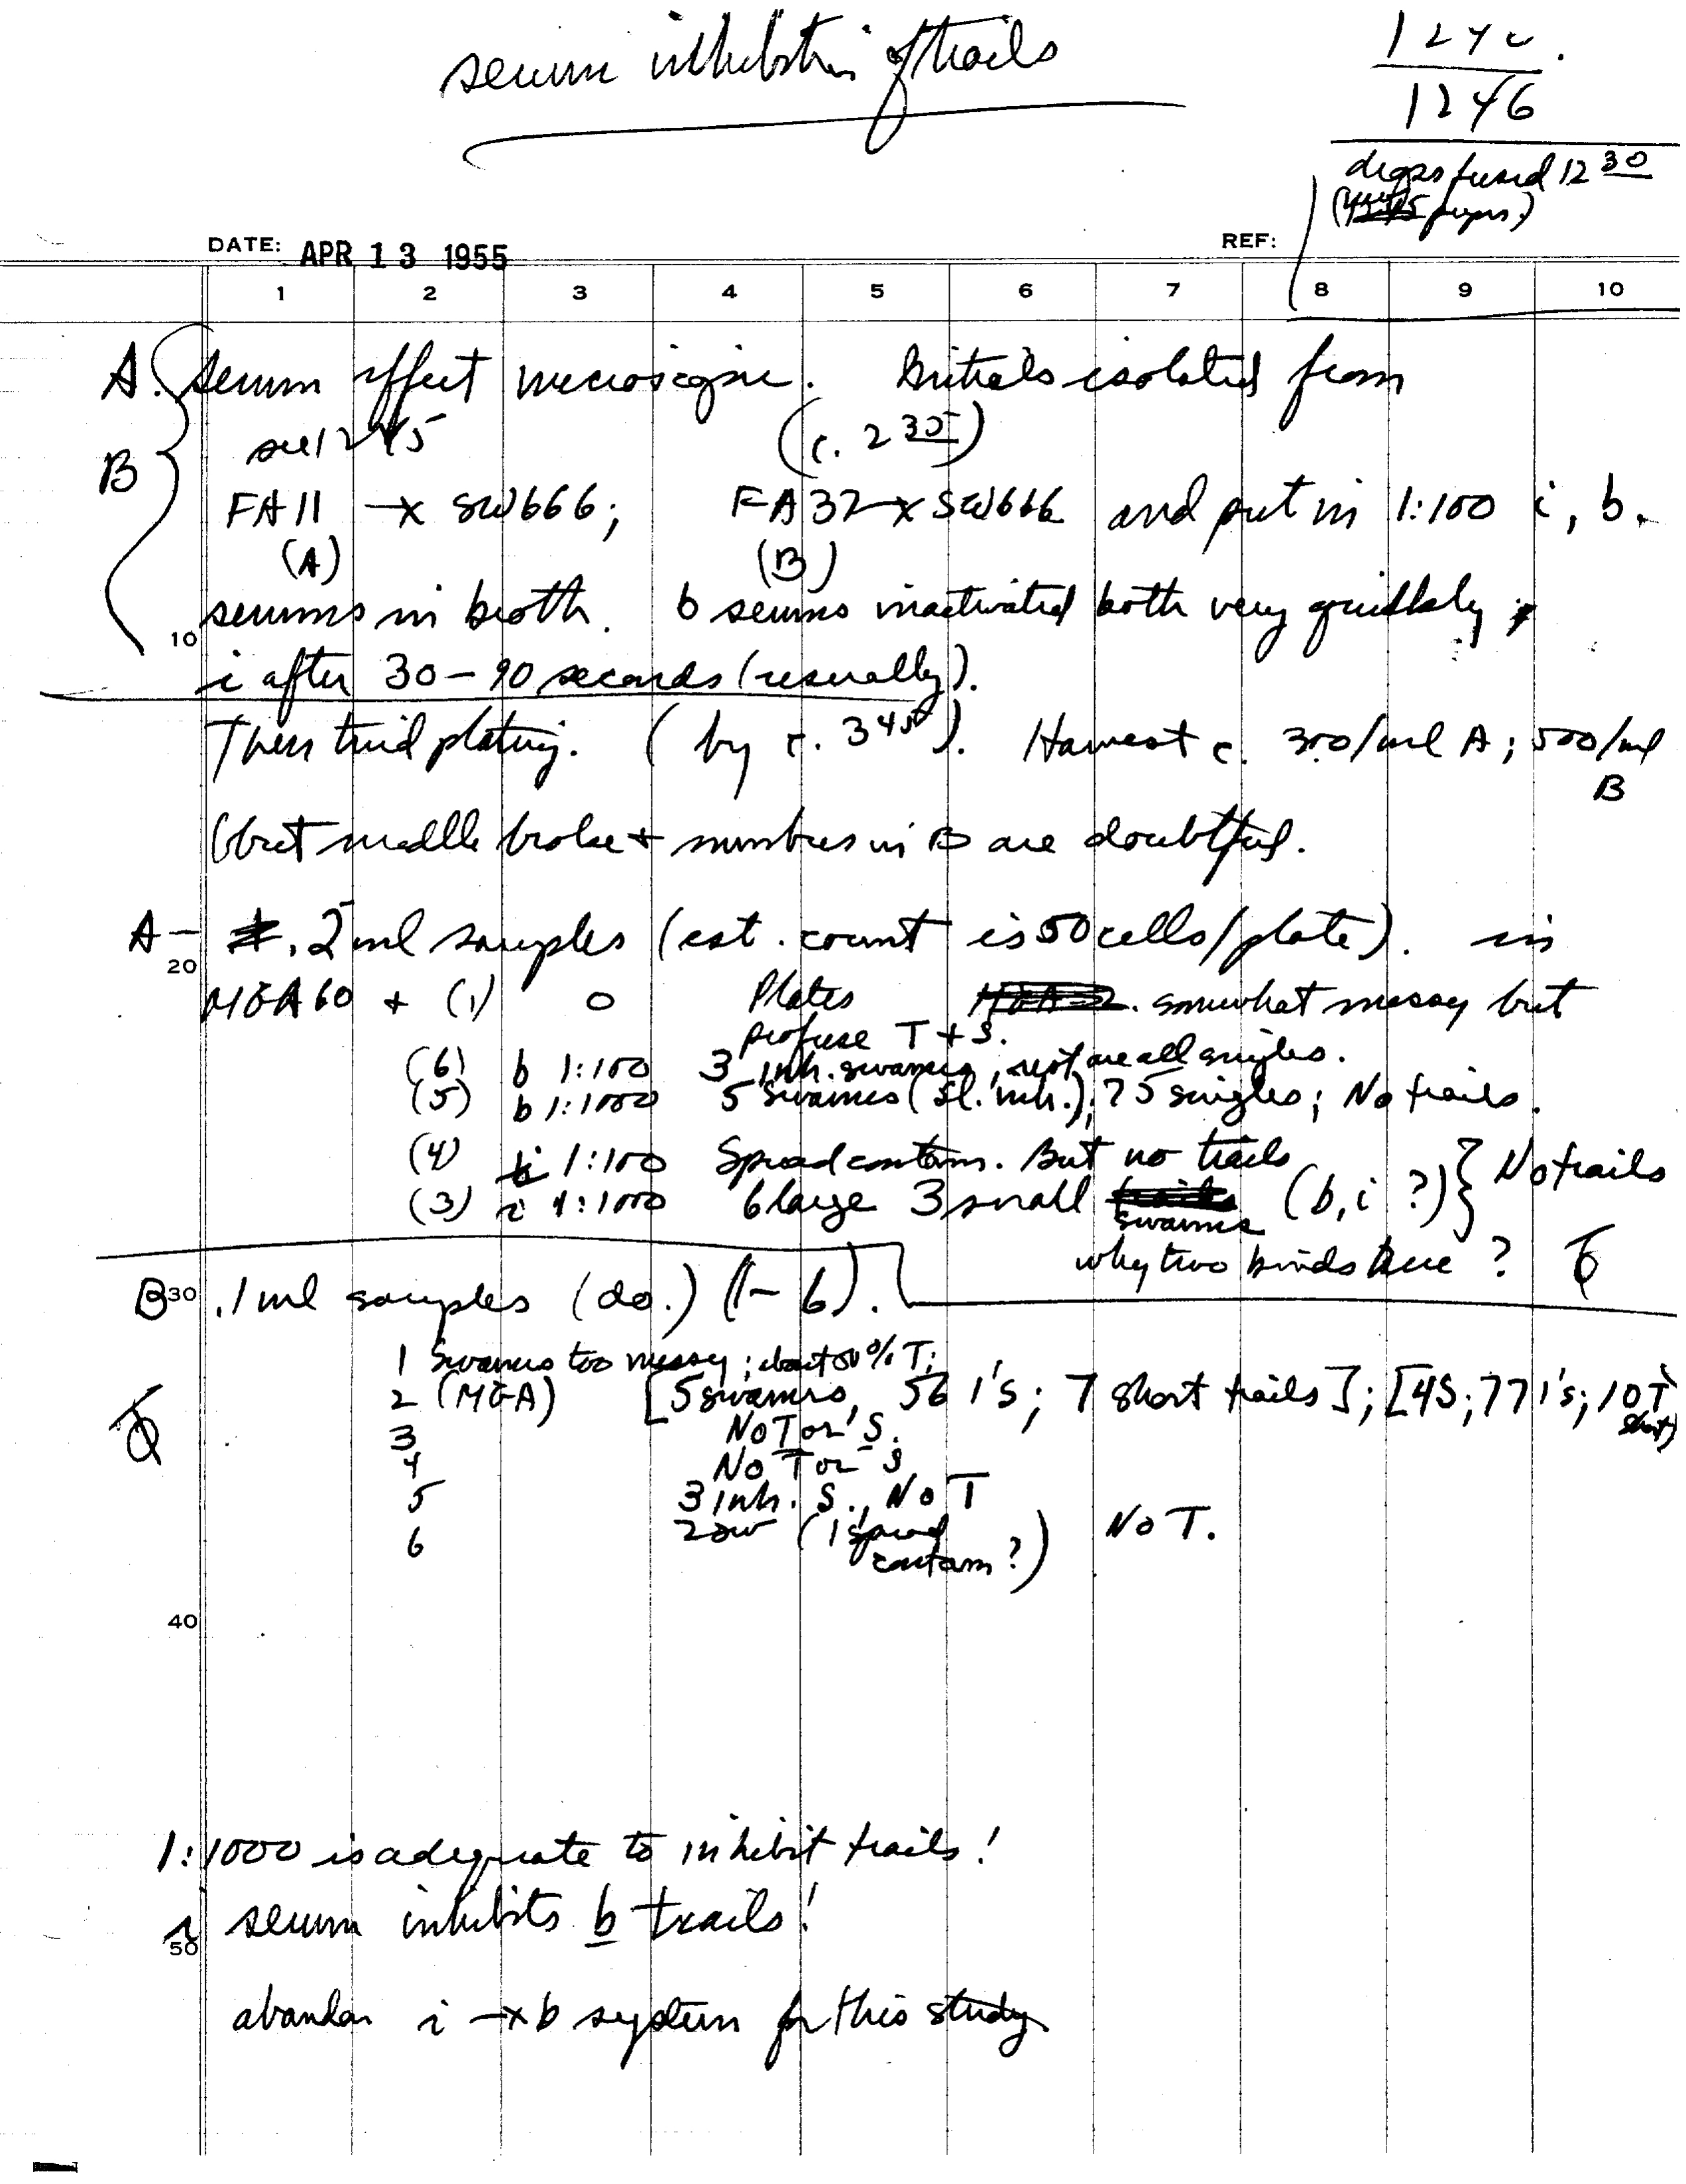 serum inhibition of trails
1246
drops fused 12 30
DATE: APR 13 1955 REF:
1 2 3 4 5 6 7 8 9 10
A. Serum effect microscopic. Initials isolated from
B see 1245 (c. 2 35)
FA11 —x SW666; FA32 —x SW666 and put in 1:100 i, b.
(A) (B)
serums in broth. b serums inactivated both very quickly;
10
i after 30-90 seconds (usually).
Then tried plating. (by c. 3 45). Harvest c. 300/ml A; 500/ml
B
(but needle broke + numbers in B are doubtful.
A — .2 ml samples (est. count is 50 cells/plate). in
20
MGA60 + (1) 0 Plates somewhat messy but
profuse T + S.
(6) b 1:100 3 inh. swarms, rest are all singles.
(5) b 1:1000 5 swarms (sl. inh.); 75 singles; No trails.
(4) i 1:100 Spread contam. But no trails
(3) i 1:1000 6 large 3 small swarms (b, i ?) } No trails
why two kinds here?
B 30 .1 ml samples (do.) (1-6).
1 Swarms too messy; about 50% T;
2 (MGA) [5 swarms, 56 1's; 7 short trails]; [4S; 77 1's; 10T
short)
3 No T or S.
4 No T or S
5 3 inh. S., No T
6 2 sw (1 spread contam?) No T.
40
1:1000 is adequate to inhibit trails!
i serum inhibits b trails!
50
abandon i —x b system for this study